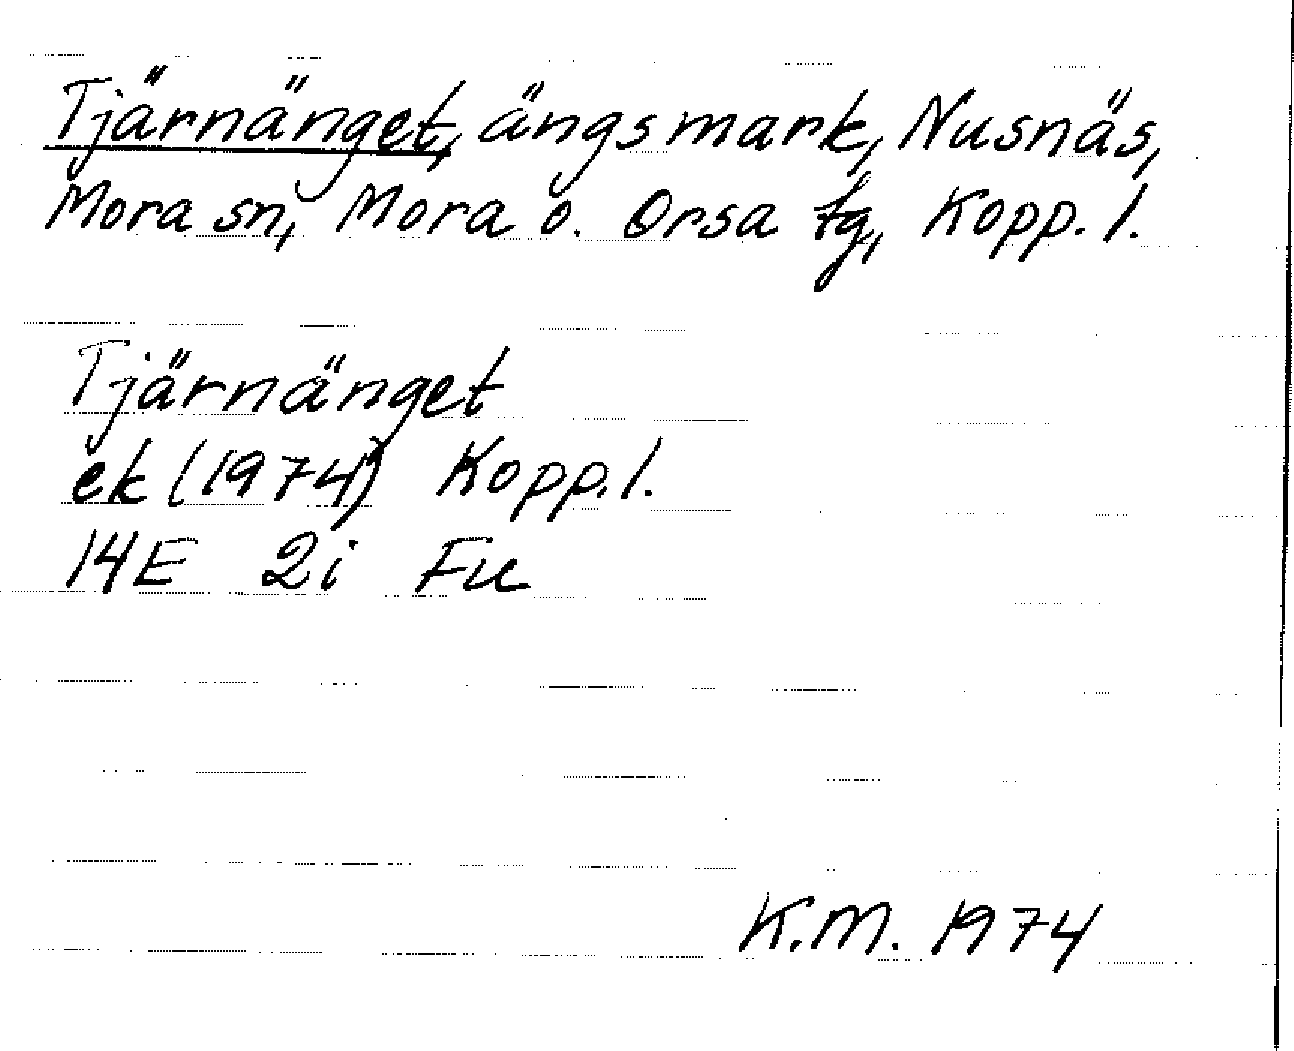 Tjärnänget, ängsmark, Nusnäs,
Mora sn, Mora o. Orsa tg, Kopp. l.
Tjärnänget
ek (1974) Kopp. l.
14E 2i Fu
K.M. 1974